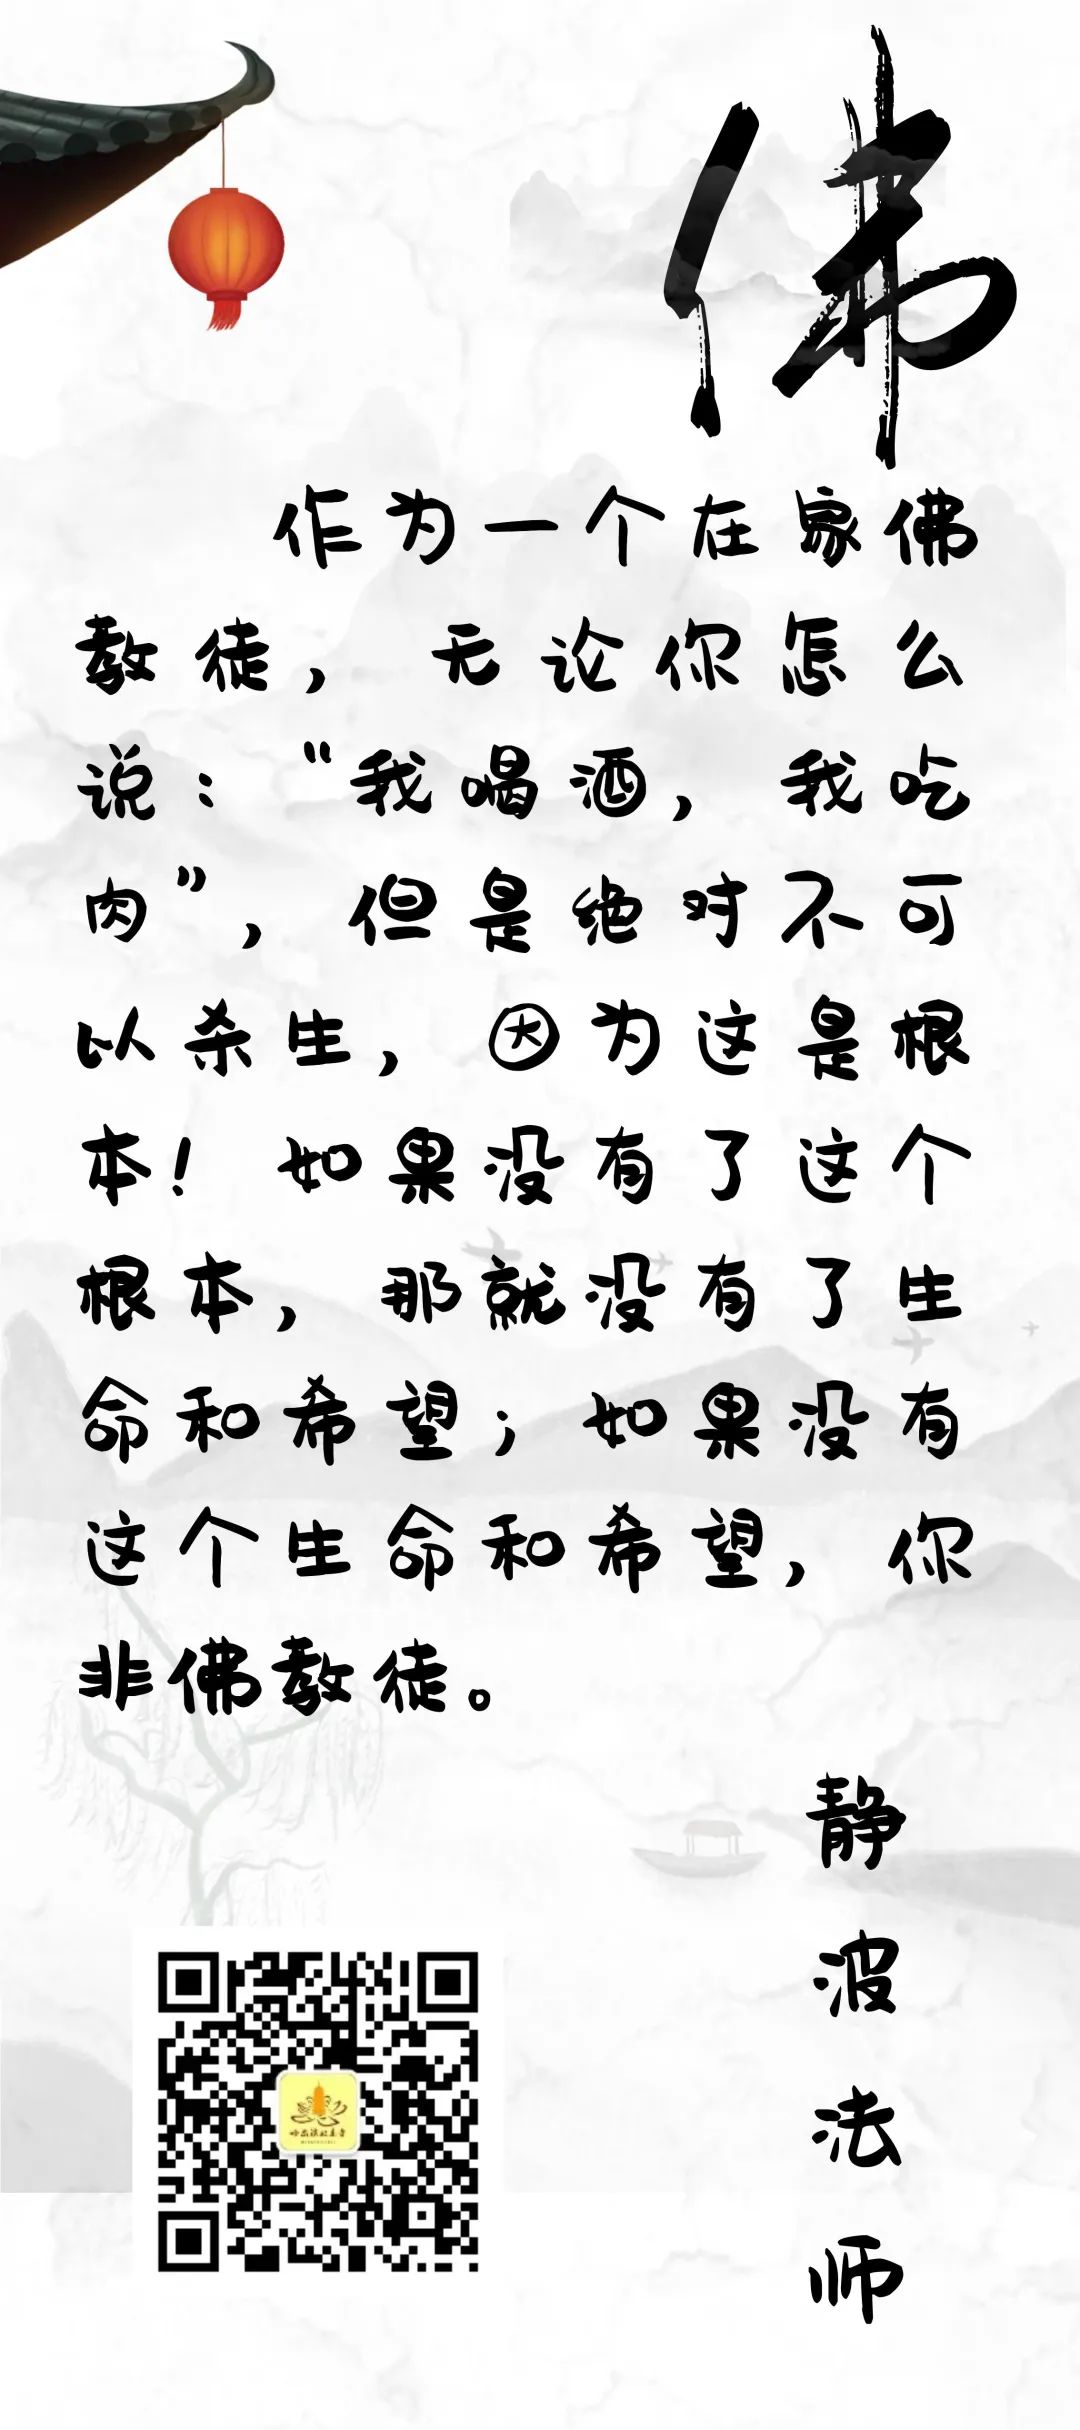 佛
作为一个在家佛
教徒，无论你怎么
说：“我喝酒，我吃
肉”，但是绝对不可
以杀生，因为这是根
本！如果没有了这个
根本，那就没有了生
命和希望；如果没有
这个生命和希望，你
非佛教徒。
静
波
法
师